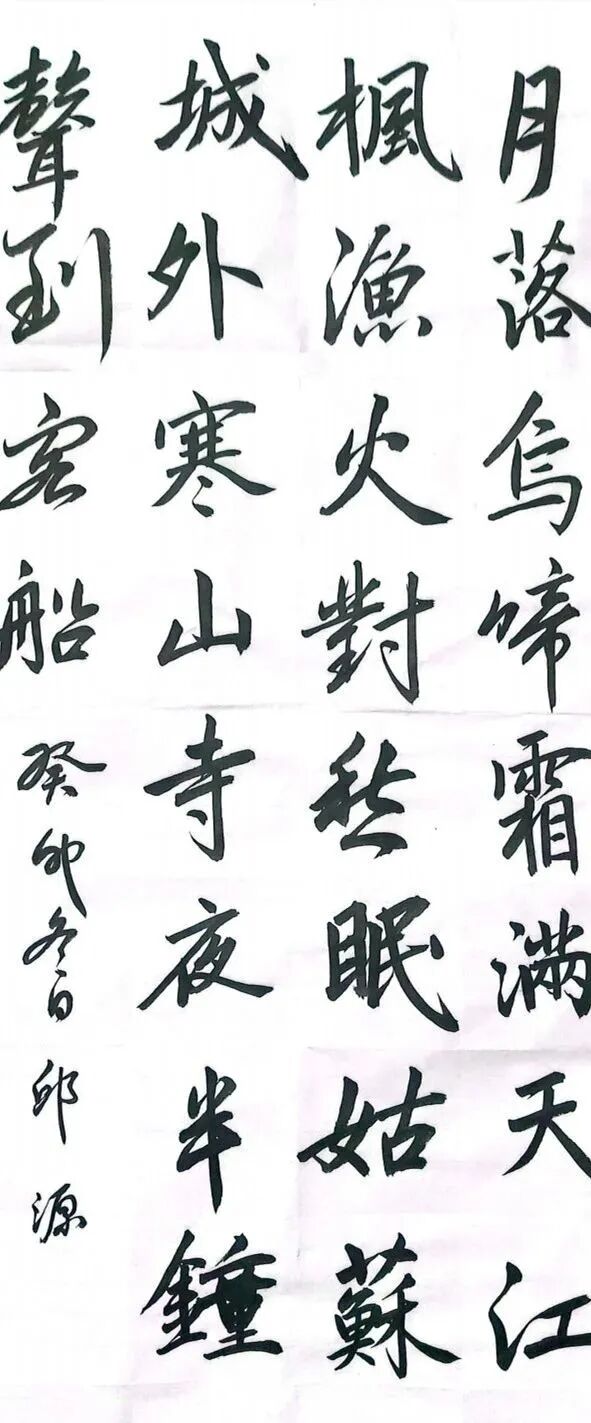 月落烏啼霜滿天江
楓漁火對愁眠姑蘇
城外寒山寺夜半鐘
聲到客船
癸卯冬日邱源